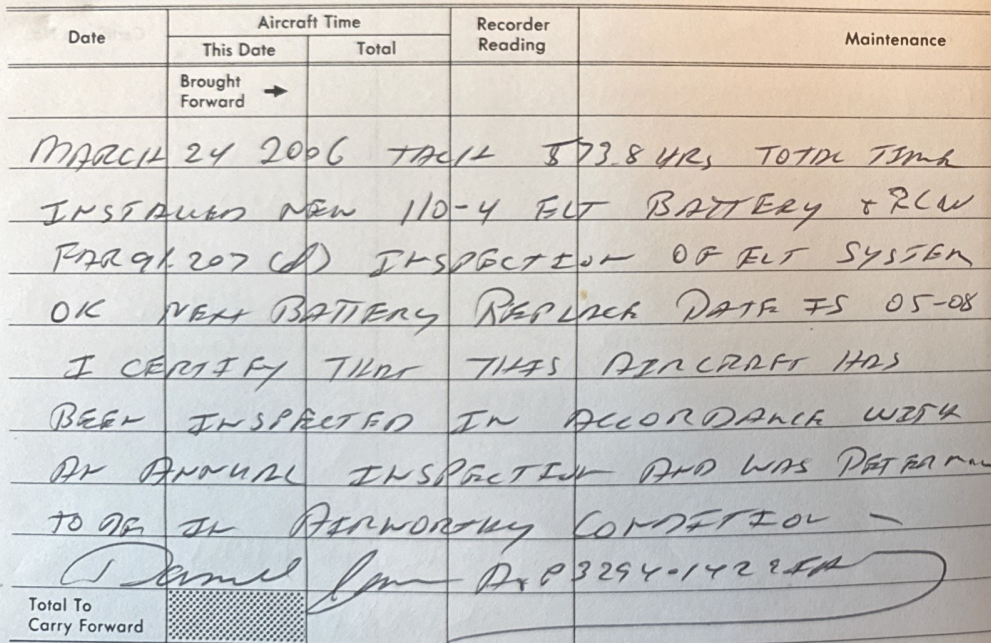 Date Aircraft Time Recorder Reading Maintenance
This Date Total
Brought Forward
MARCH 24 2006 TACH 573.8 HRS TOTAL TIME
INSTALLED NEW 110-4 ELT BATTERY +
FAR 91.207 (d) INSPECTION OF ELT SYSTEM
OK NEXT BATTERY REPLACE DATE IS 05-08
I CERTIFY THAT THIS AIRCRAFT HAS
BEEN INSPECTED IN ACCORDANCE WITH
AN ANNUAL INSPECTION AND WAS
TO BE IN AIRWORTHY CONDITION —
Daniel
Total To Carry Forward